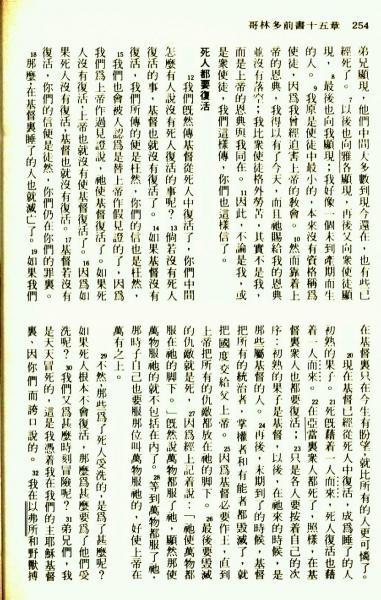 哥林多前書十五章　254
弟兄顯現，他們中間大多數到現今還在，也有些已
經死了。7 以後也向雅各顯現，再後又向衆使徒顯
現，8 最後也向我顯現；我好像一個未到產期而生
的人。9 我原是使徒中最小的，本來沒有資格稱爲
使徒，因爲我曾經迫害上帝的教會。10 然而靠着上
帝的恩典，我得以有了今天，而且祂賜給我的恩典
並沒有落空；我比衆使徒格外勞苦，其實不是我，
而是上帝的恩典與我同在。11 因此，不論是我，或
是衆使徒，我們這樣傳，你們也這樣信了。
死人都要復活
12 我們既然傳基督從死人中復活了，你們中間
怎麼有人說沒有死人復活的事呢？13 若沒有死人
復活的事，基督也就沒有復活了。14 如果基督沒有
復活，我們所傳的便是枉然，你們的信也是枉然，
15 我們也會被人認爲是替上帝作假見證的了，因爲
我們爲上帝作過見證說，祂使基督復活了。如果死
人沒有復活，上帝也就沒有使基督復活了。16 因爲如
果死人沒有復活，基督也就沒有復活。17 基督若沒有
復活，你們的信便是徒然，你們仍在你們的罪裏。
18 那麼，在基督裏睡了的人也就滅亡了。19 如果我們
在基督裏只在今生有盼望，就比所有的人更可憐了。
20 現在基督已經從死人中復活，成爲睡了的人
初熟的果子。21 死旣藉着一人而來，死人復活也藉
着一人而來。22 在亞當裏衆人都死了，照樣，在基
督裏衆人也都要復活；23 只是各人要按着自己的次
序：初熟的果子是基督，以後，在祂來的時候，是
那些屬基督的人。24 再後，末期到了的時候，基督
把所有的統治者、掌權者和有能者都毀滅了，就
把國度交給父上帝。25 因爲基督必要作王，直到
上帝把所有的仇敵都放在祂的脚下。26 最後要毀滅
的仇敵就是死，27 因爲經上記着說：「祂使萬物都
服在祂的脚下。」旣然說萬物都服了祂，顯然那使
萬物服祂的就不包括在內了。28 等到萬物都服了祂，
那時子自己也要服那位叫萬物服祂的，好使上帝在
萬有之上。
29 不然，那些爲了死人受洗的，是爲了甚麼呢？
如果死人根本不會復活，那麼爲甚麼要爲了他們受
洗呢？30 我們又爲甚麼時刻冒險呢？31 弟兄們，我
是天天冒死的，這是我憑着我在我們的主耶穌基督
裏，因你們而誇口說的。32 我在以弗所和野獸搏